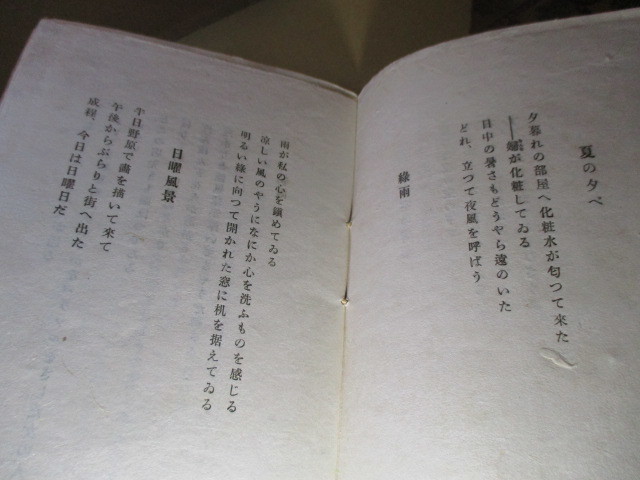 夏の夕べ
夕暮れの部屋へ化粧水が匂つて来た
が化粧してゐる
日中の暑さもどうやら遠のいた
どれ、立つて夜風を呼ばう
緑雨
雨が私の心を鎮めてゐる
涼しい風のやうになにか心を洗ふものを感じる
明るい緑に向つて開かれた窓に机を据えてゐる
日曜風景
半日野原で画を描いて来て
午後からぶらりと街へ出た
成程、今日は日曜日だ